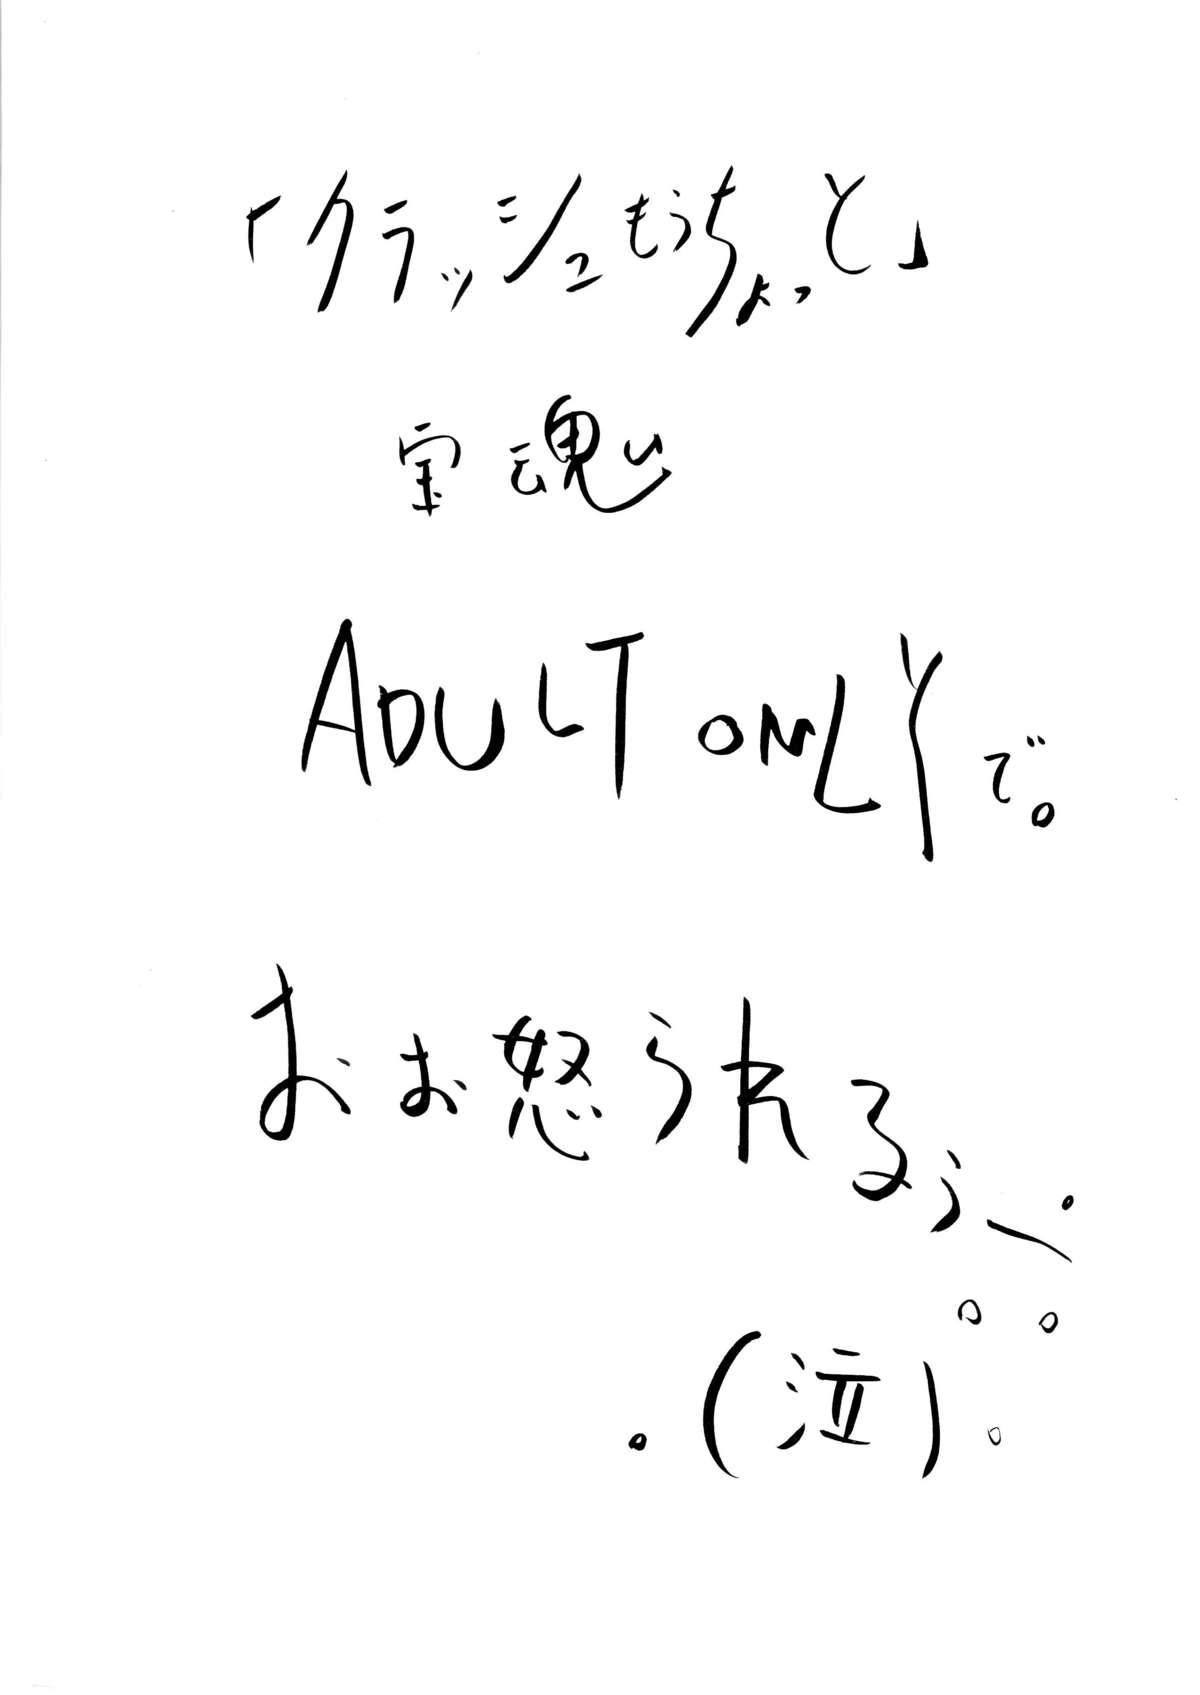 「クラッシュもうちょっと」
宝魂
ADULT ONLYで。
おお怒られるぅ〜。
(泣)